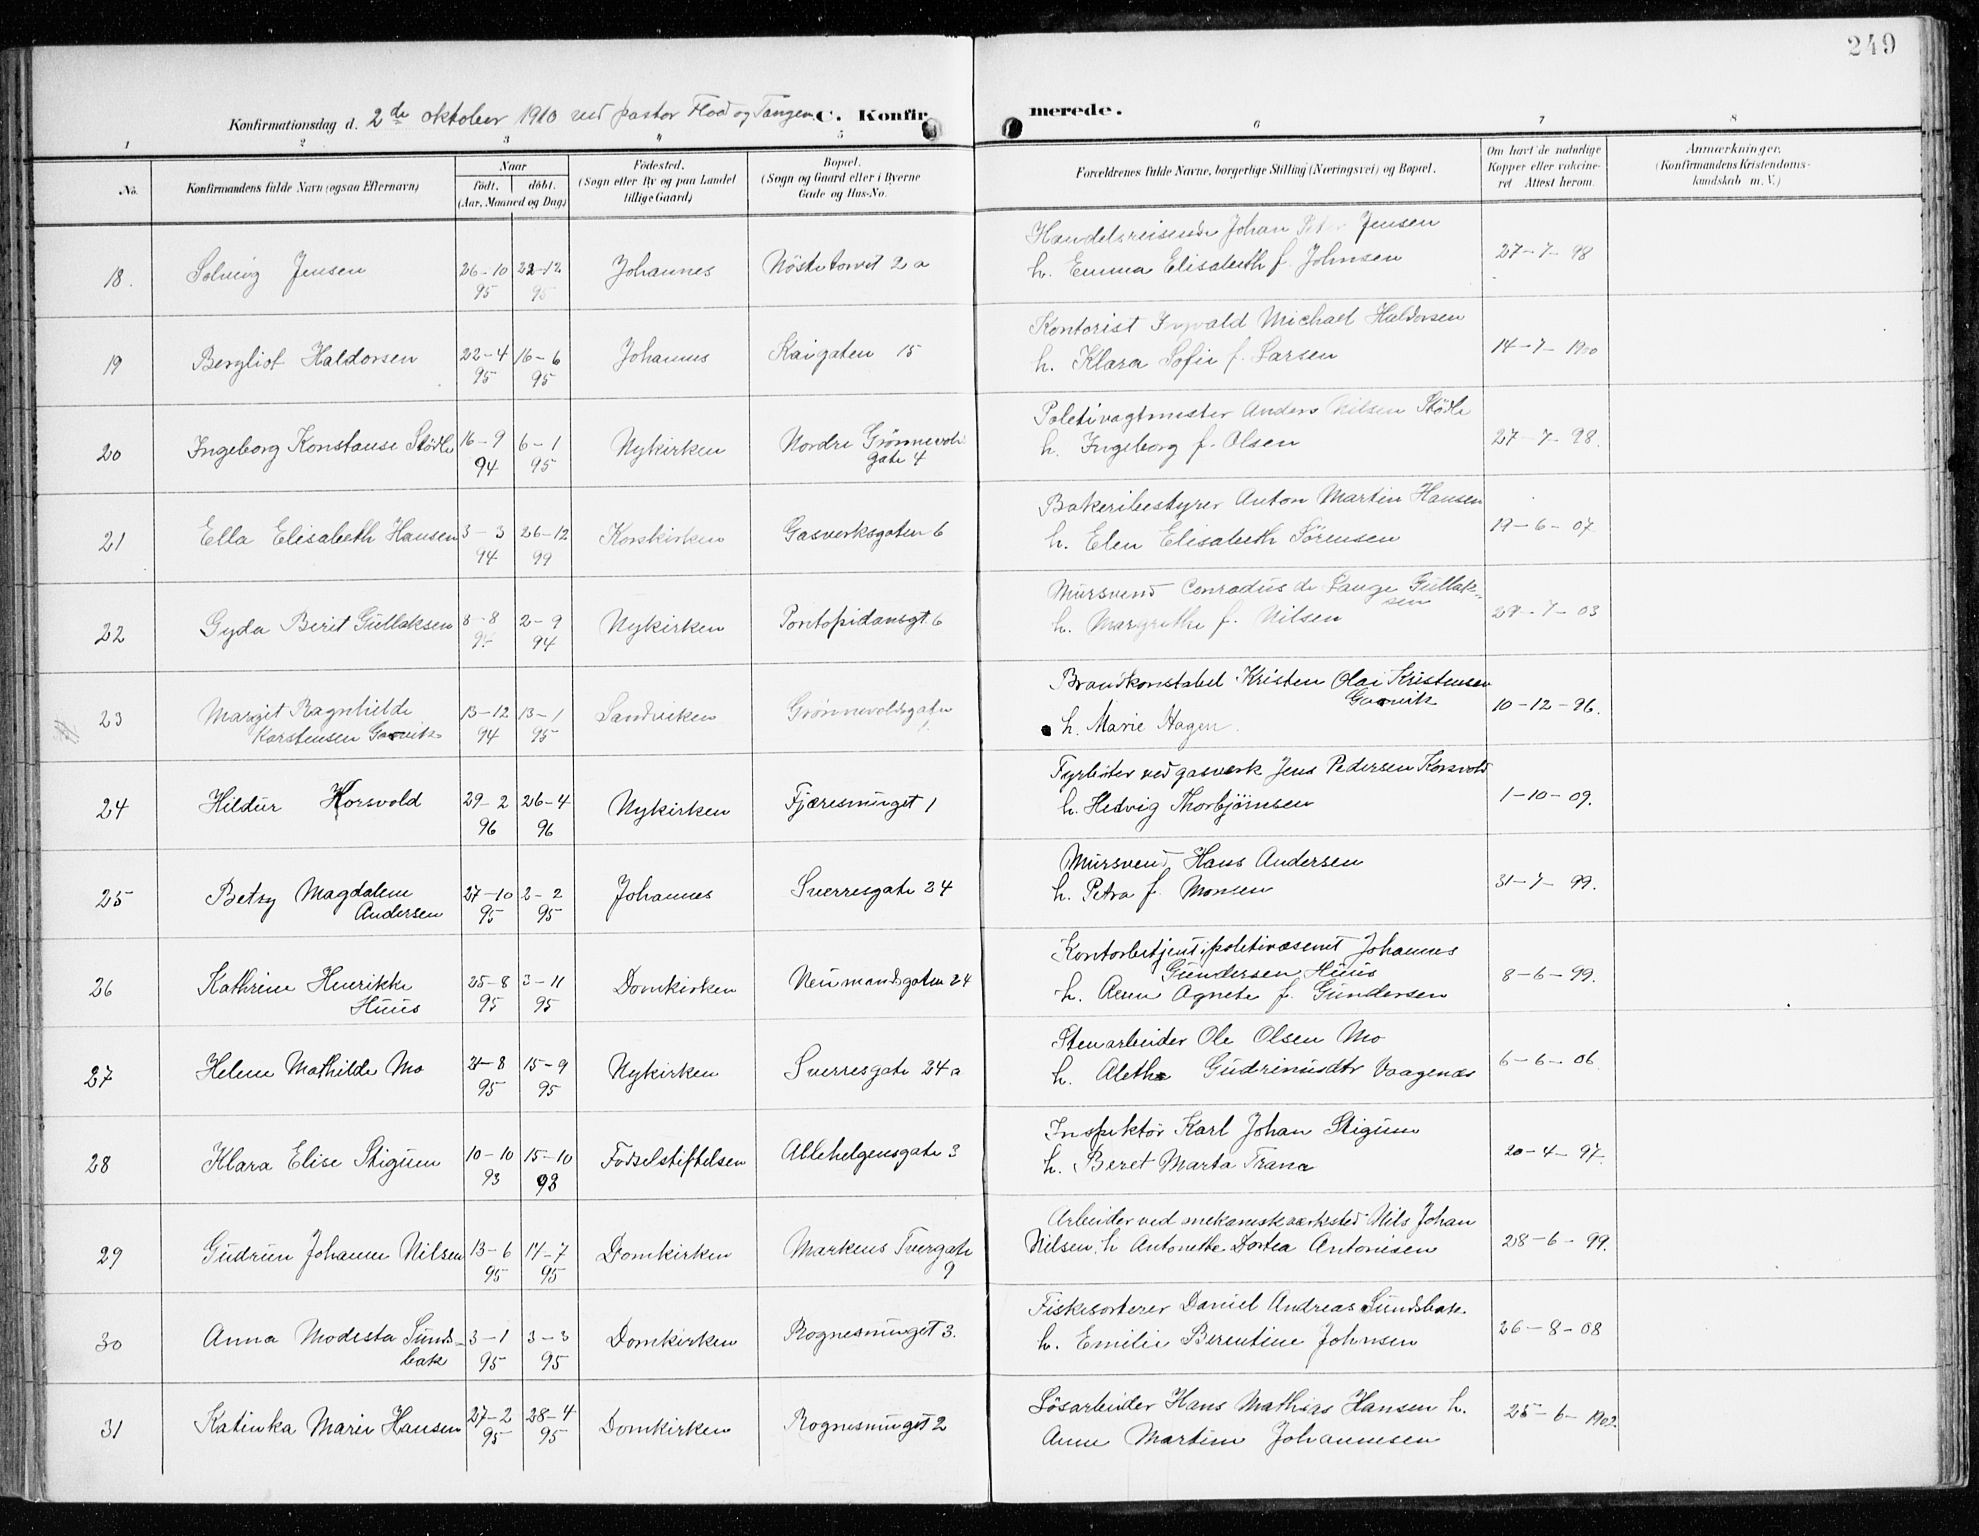 249
Konfirmationsdag d. 2de oktober 1910 ved pastor Flood og Tangen. C. Konfirmerede.
1 2 3 4 5 6 7 8
No. Konfirmandens fulde Navn (ogsaa Efternavn) Naar født. døbt. (Aar, Maaned og Dag) Fødested. (Sogn eller By og paa Landet tillige Gaard) Bopæl. (Sogn og Gaard eller i Byerne Gade og Hus-No. Forældrenes fulde Navne, borgerlige Stilling (Næringsvei) og Bopæl. Om havt de naturlige Kopper eller vakcineret. Attest herom. Anmærkninger. (Konfirmandens Kristendomskundskab m. V.)
18. Solveig Jensen 26-10 95 22-12 95 Johannes Nøstetorvet 2a Handelsreisende Johan Peter Jensen
h. Emma Elisabeth f. Johnsen 27-7-98
19 Bergliot Haldorsen 22-4 95 16-6 95 Johannes Kaigaten 15 Kontorist Ingvald Michael Haldorsen
h. Klara Sofie f. Larsen 14-7-1900
20 Ingeborg Konstanse Stødle 16-9 94 6-1 95 Nykirken Nordre Grønnevoldgate 4 Politivagtmester Anders Nilsen Stødle
h. Ingeborg f. Olsen 27-7-98.
21 Ella Elisabeth Hansen 3-3 94 26-12 99 Korskirken Gasverksgaten 6 Bakeribestyrer Anton Martin Hansen
h. Elen Elisabeth Sørensen 19-6-07
22 Gyda Berit Gullaksen 8-8 94 2-9 94 Nykirken Pontopidansgt. 6 Mursvend Conradus de Lange Gullaksen
h. Margrethe f. Nilsen 29-7-03
23 Margit Ragnhilde
Karstensen Garvik 13-12 94 13-1 95 Sandviken Grønnevoldsgaten 1 Brandkonstabel Kristen Olai Kristensen
Garvik
h. Marie Hagen. 10-12-96.
24 Hildur Korsvold 29-2 96 26-4 96 Nykirken Fjæresmuget 1 Fyrbøter ved gasverk Jens Pedersen Korsvold
h. Hedvig Thorbjørnsen 1-10-09.
25 Betsy Magdalene
Andersen 27-10 95 2-2 95 Johannes Sverresgate 24 Mursvend Hans Andersen
h. Petra f. Monsen 31-7-99.
26 Kathrine Henrikke
Huus 25-8 95 3-11 95 Domkirken Neumandsgaten 24 Kontorbetjent i politivæsenet Johannes
Gundersen Huus
h. Anne Agnete f. Gundersen 8-6-99.
27 Helene Mathilde Mo 21-8 95 15-9 95 Nykirken Sverresgate 24a Stenarbeider Ole Olsen Mo
h. Alethe Gudrinusdtr Vaagenæs 6-6-06
28 Klara Elise Stigum 10-10 93 15-10 93 Fødselstiftelsen Allehelgensgate 3 Inspektør Karl Johan Stigum
h. Beret Marta Trana 20-4-97.
29 Gudrun Johanne Nilsen 13-6 95 14-7 95 Domkirken Markens Tvergate 9 Arbeider ved mekanisk værksted Nils Johan
Nilsen h. Antonette Dortea Antonisen 28-6-99.
30 Anna Modesta Sundsbak 3-1 95 3-3 95 Domkirken Rognesmuget 3. Fiskesorterer Daniel Andreas Sundsbak.
h. Emilie Berentine Johnsen 26-8-08
31 Katinka Marie Hansen 27-2 95 28-4 95 Domkirken Rognesmuget 2 Løsarbeider Hans Mathias Hansen h.
Anne Martine Johannesen 25-6-1902.